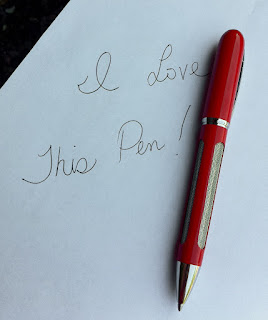 I Love
This Pen!